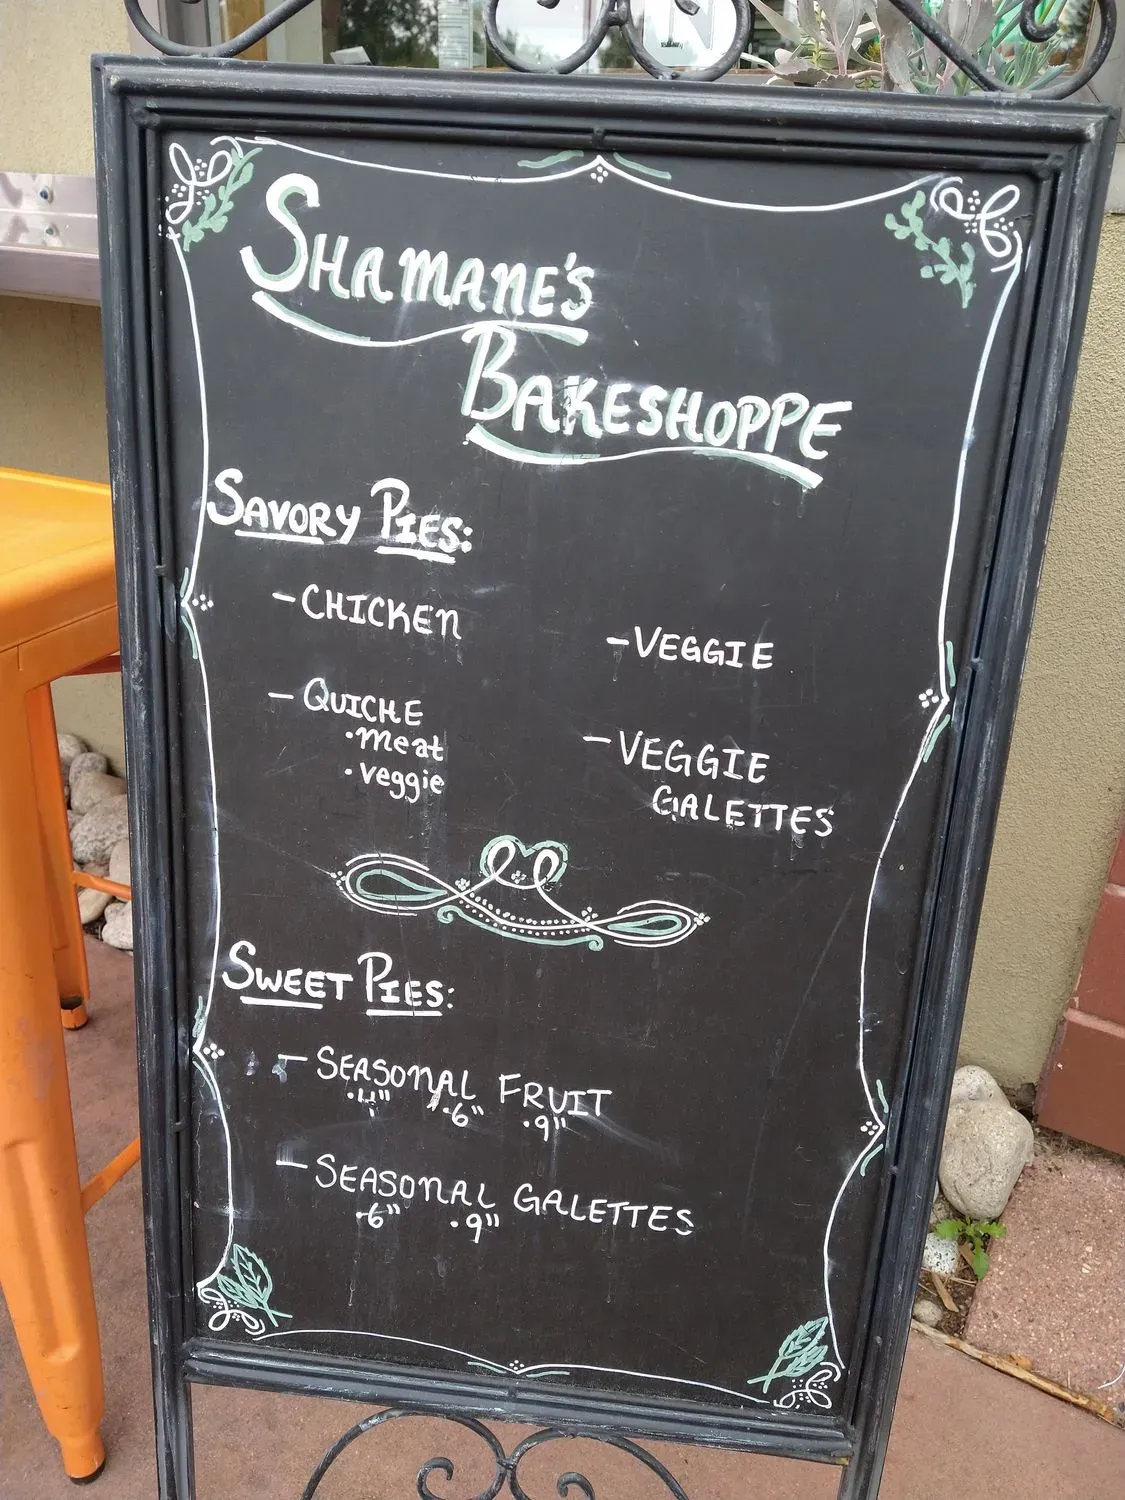 SHAMANE'S
BAKESHOPPE
SAVORY PIES:
- CHICKEN
- VEGGIE
- QUICHE
• meat
• veggie
- VEGGIE
GALETTES
SWEET PIES:
- SEASONAL FRUIT
• 4" • 6" • 9"
- SEASONAL GALETTES
• 6" • 9"